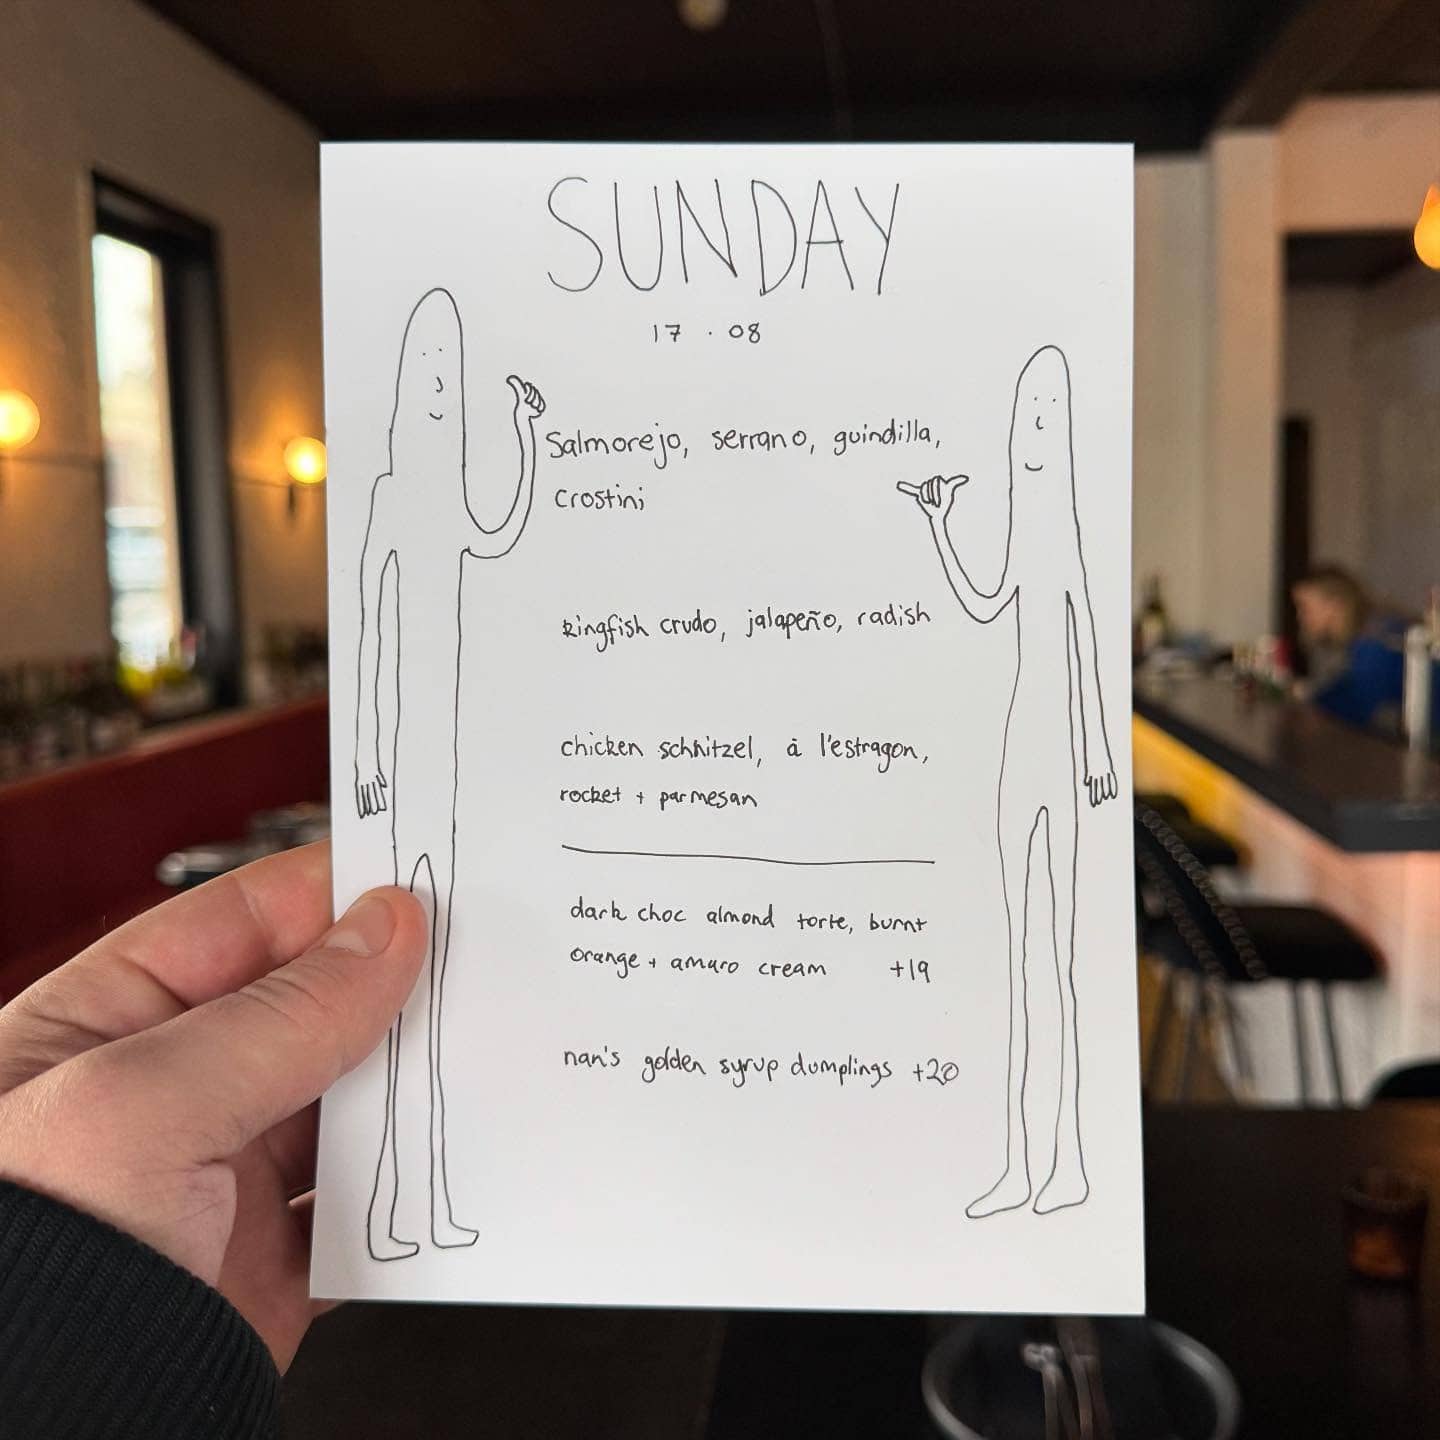 SUNDAY
17 . 08
Salmorejo, serrano, guindilla,
crostini
kingfish crudo, jalapeño, radish
chicken schnitzel, à l'estragon,
rocket + parmesan
dark choc almond torte, burnt
orange + amaro cream +19
nan's golden syrup dumplings +20